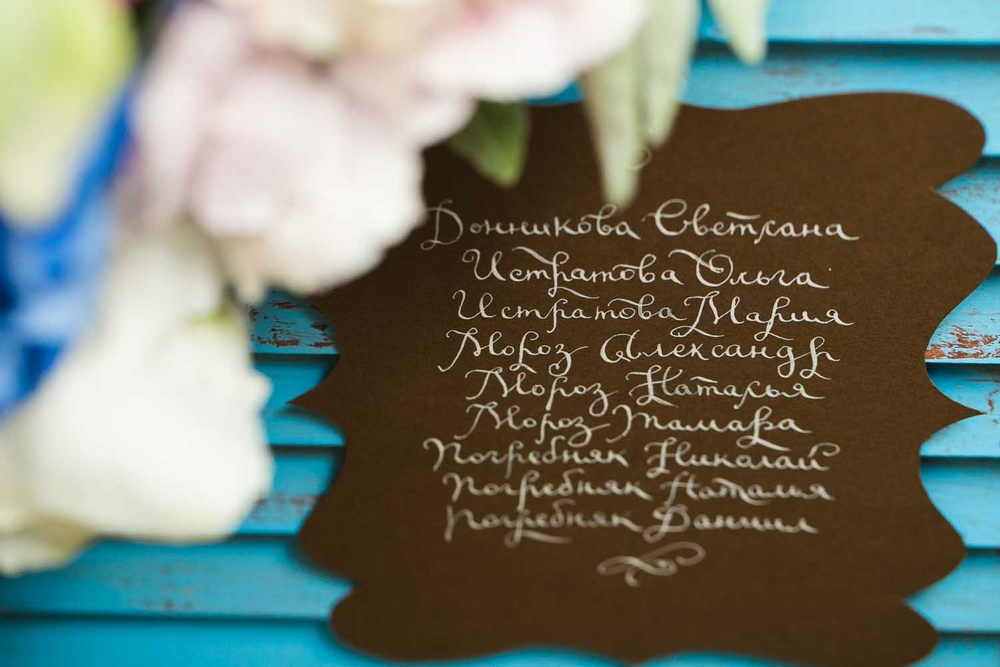 Донникова Светлана
Истратова Ольга
Истратова Мария
Мороз Александр
Мороз Наталья
Мороз Тамара
Погребняк Николай
Погребняк Наталья
Погребняк Даниил